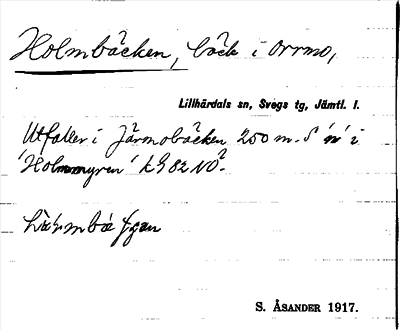 Holmbäcken, bäck i Orrmo,
Lillhärdals sn, Svegs tg, Jämtl. l.
Utfaller i Järmobäcken 250 m. S 'n' i
'Holmmyren' L 9 82 NO.
S. ÅSANDER 1917.